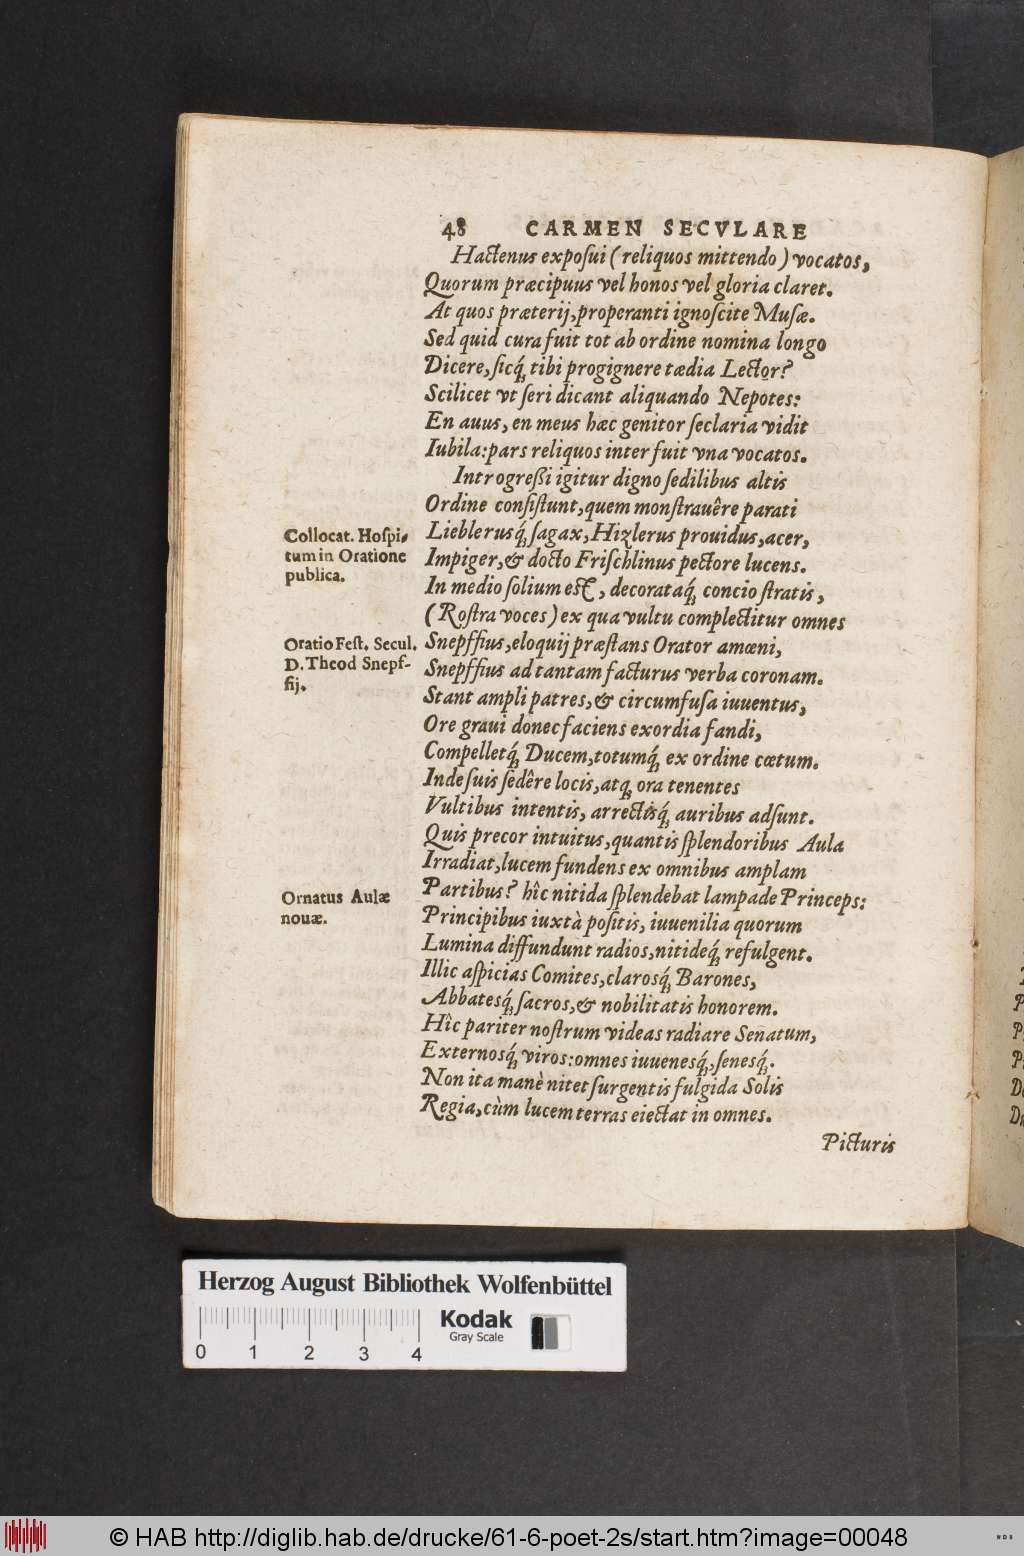 48 CARMEN SECVLARE
Hactenus exposui (reliquos mittendo) vocatos,
Quorum præcipuus vel honos vel gloria claret.
At quos præterij, properanti ignoscite Musæ.
Sed quid cura fuit tot ab ordine nomina longo
Dicere, sicq́; tibi progignere tædia Lector?
Scilicet vt seri dicant aliquando Nepotes:
En auus, en meus hæc genitor seclaria vidit
Iubila: pars reliquos inter fuit vna vocatos.
Introgreßi igitur digno sedilibus altis
Ordine consistunt, quem monstrauêre parati
Collocat. Hospi-
tum in Oratione
publica.
Lieblerusq́; sagax, Hizlerus prouidus, acer,
Impiger, & docto Frischlinus pectore lucens.
In medio solium est, decorataq́; concio stratis,
(Rostra voces) ex qua vultu complectitur omnes
Oratio Fest. Secul.
D. Theod Snepf-
fij.
Snepffius, eloquij præstans Orator amœni,
Snepffius ad tantam facturus verba coronam.
Stant ampli patres, & circumfusa iuuentus,
Ore graui donec faciens exordia fandi,
Compelletq́; Ducem, totumq́; ex ordine cœtum.
Inde suis sedêre locis, atq; ora tenentes
Vultibus intentis, arrectisq́; auribus adsunt.
Quis precor intuitus, quantis splendoribus Aula
Irradiat, lucem fundens ex omnibus amplam
Ornatus Aulæ
nouæ.
Partibus? hîc nitida splendebat lampade Princeps:
Principibus iuxtà positis, iuuenilia quorum
Lumina diffundunt radios, nitideq́; refulgent.
Illic aspicias Comites, clarosq́; Barones,
Abbatesq́; sacros, & nobilitatis honorem.
Hîc pariter nostrum videas radiare Senatum,
Externosq́; viros: omnes iuuenesq́;, senesq́;.
Non ita manè nitet surgentis fulgida Solis
Regia, cùm lucem terras eiectat in omnes.
Picturis
Herzog August Bibliothek Wolfenbüttel
0 1 2 3 4
Kodak
Gray Scale
© HAB http://diglib.hab.de/drucke/61-6-poet-2s/start.htm?image=00048